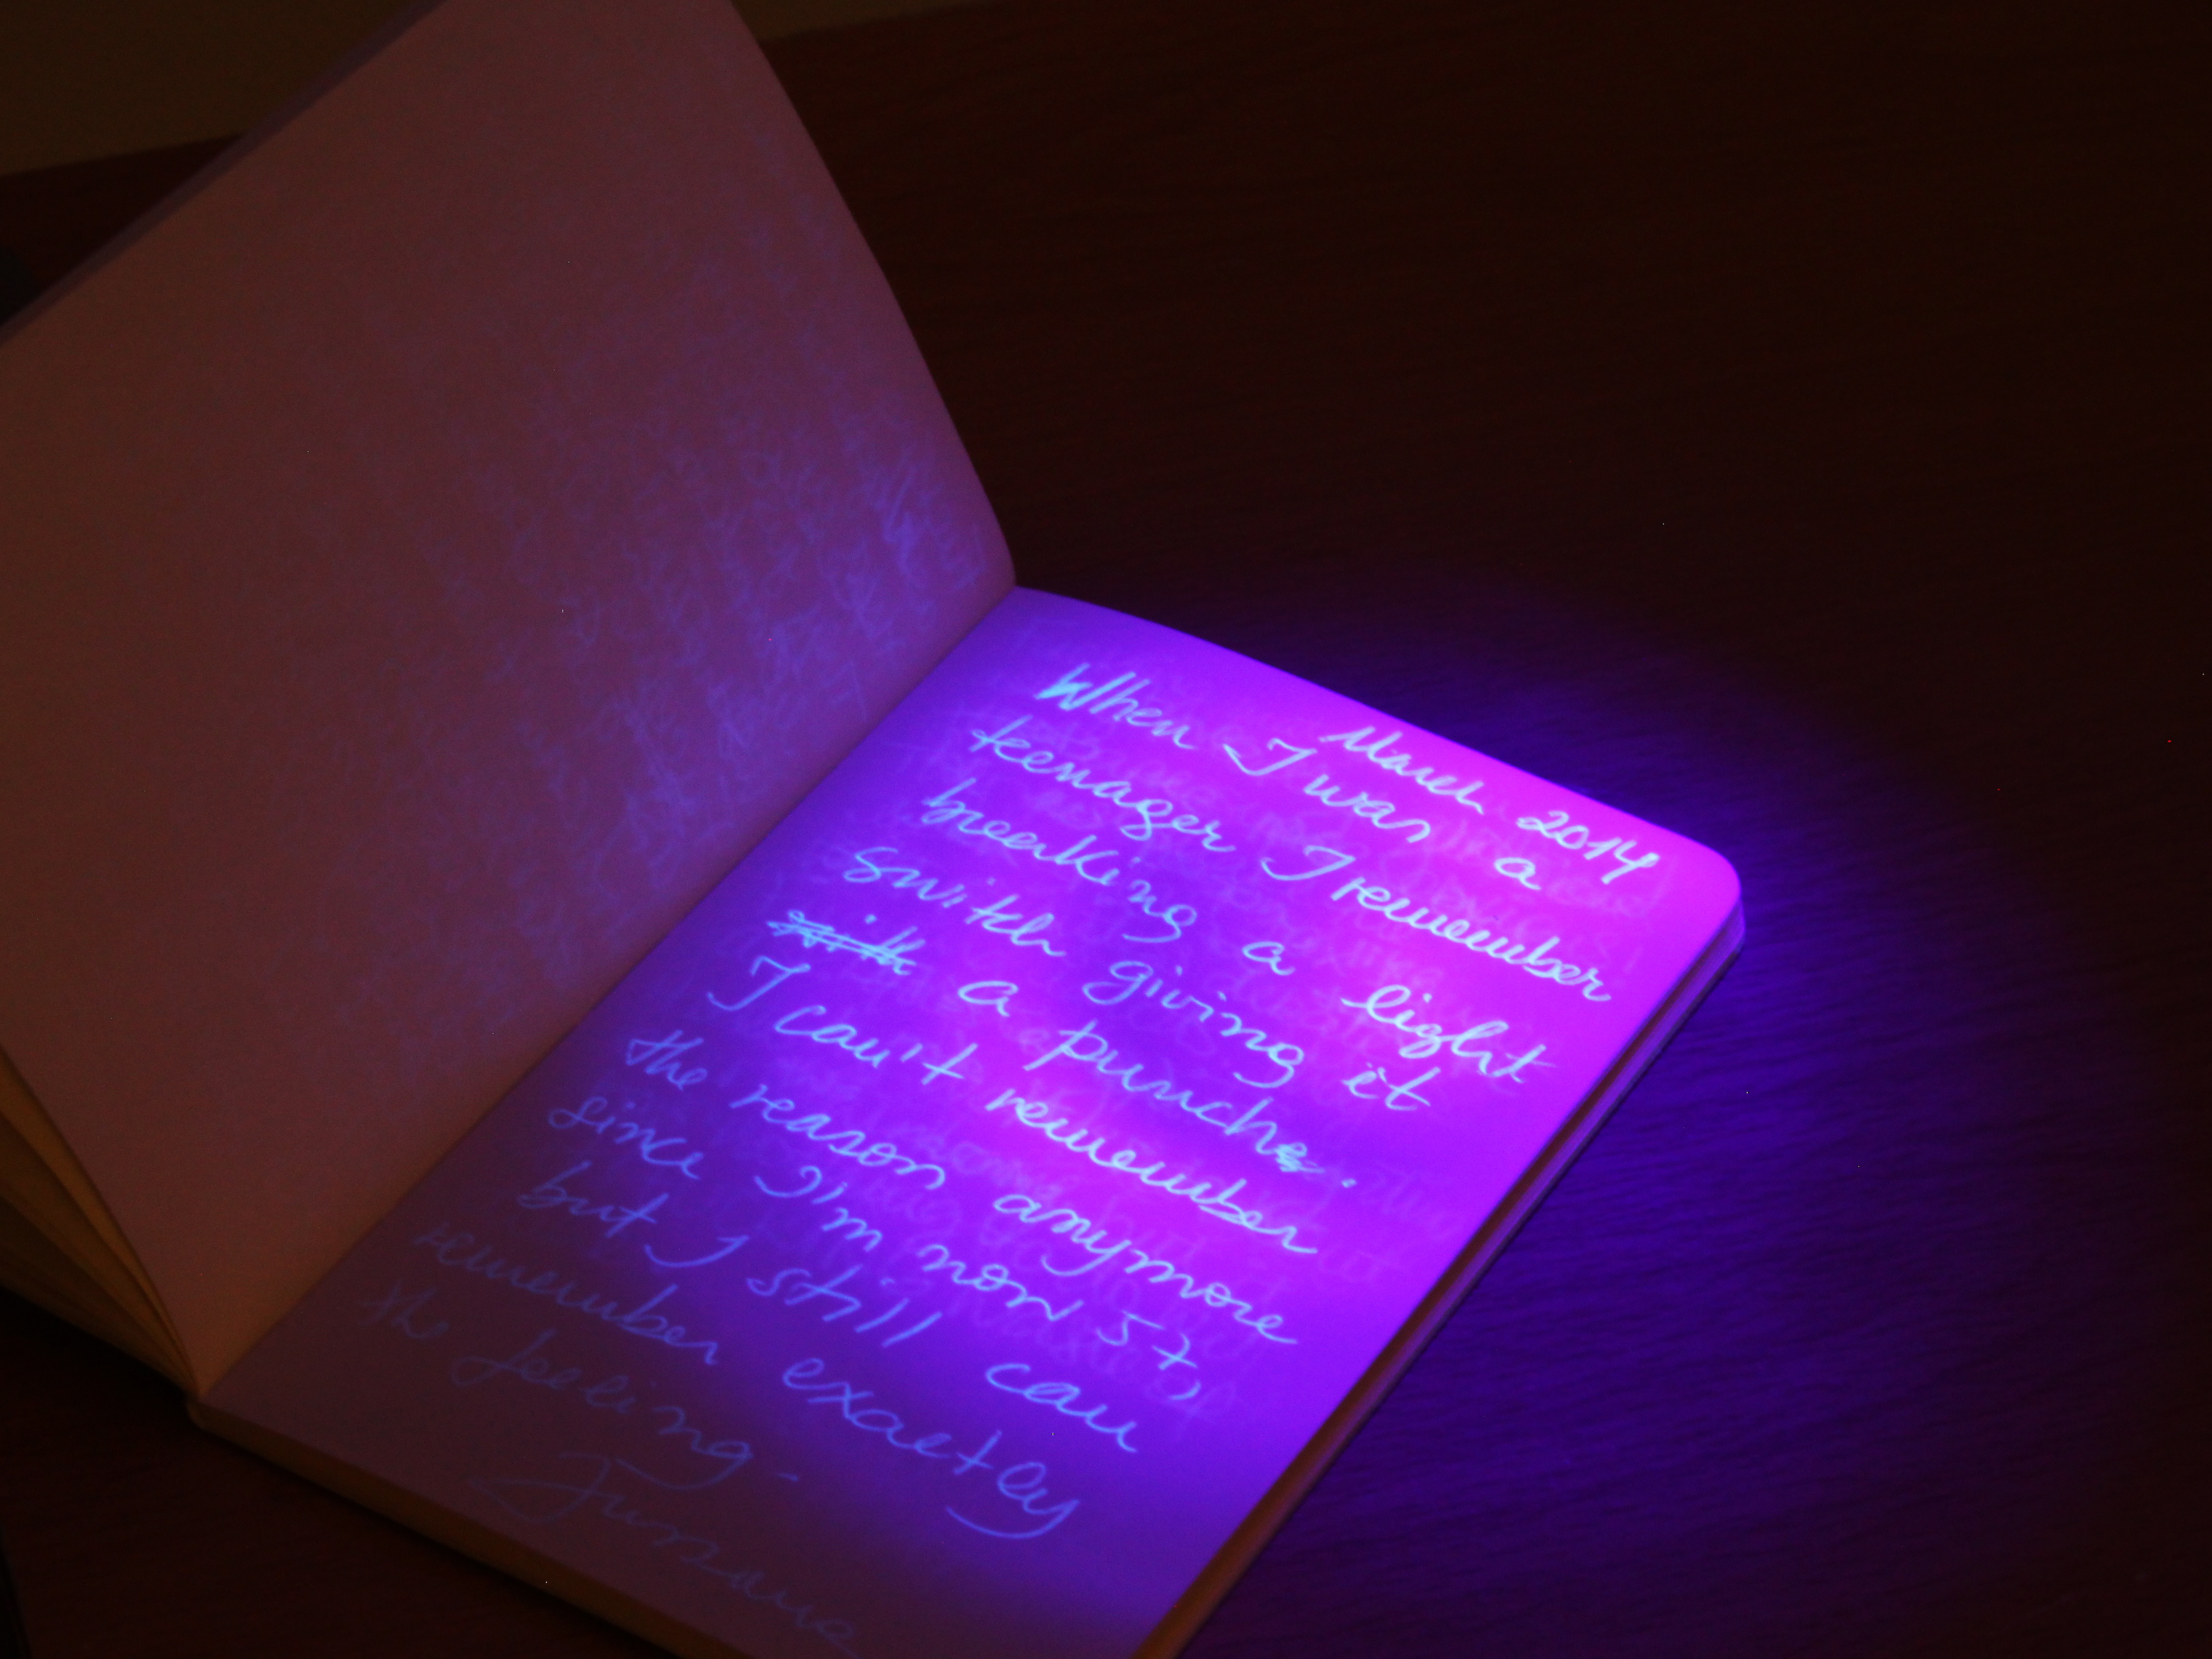 March 2014
When I was a
teenager I remember
breaking a light
switch giving it
with a punch.
I can't remember
the reason anymore
since I'm now 57,
but I still can
remember exactly
the feeling.